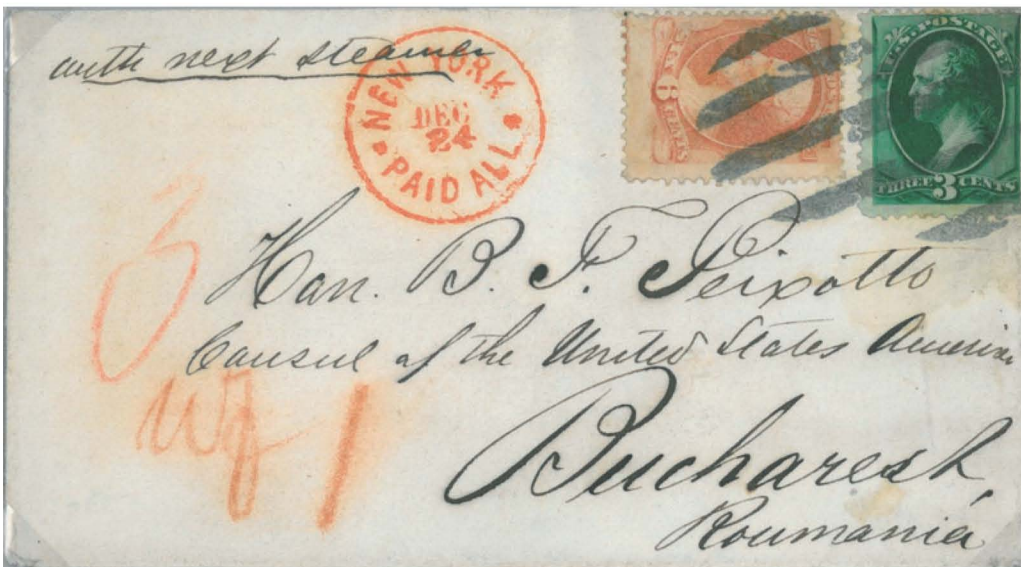 with next steamer
NEW YORK
DEC
24
PAID ALL
U.S. POSTAGE
THREE 3 CENTS
6
Hon. B. F. Peixotto
Consul of the United States America
Bucharest,
Roumania
3
Wf 1